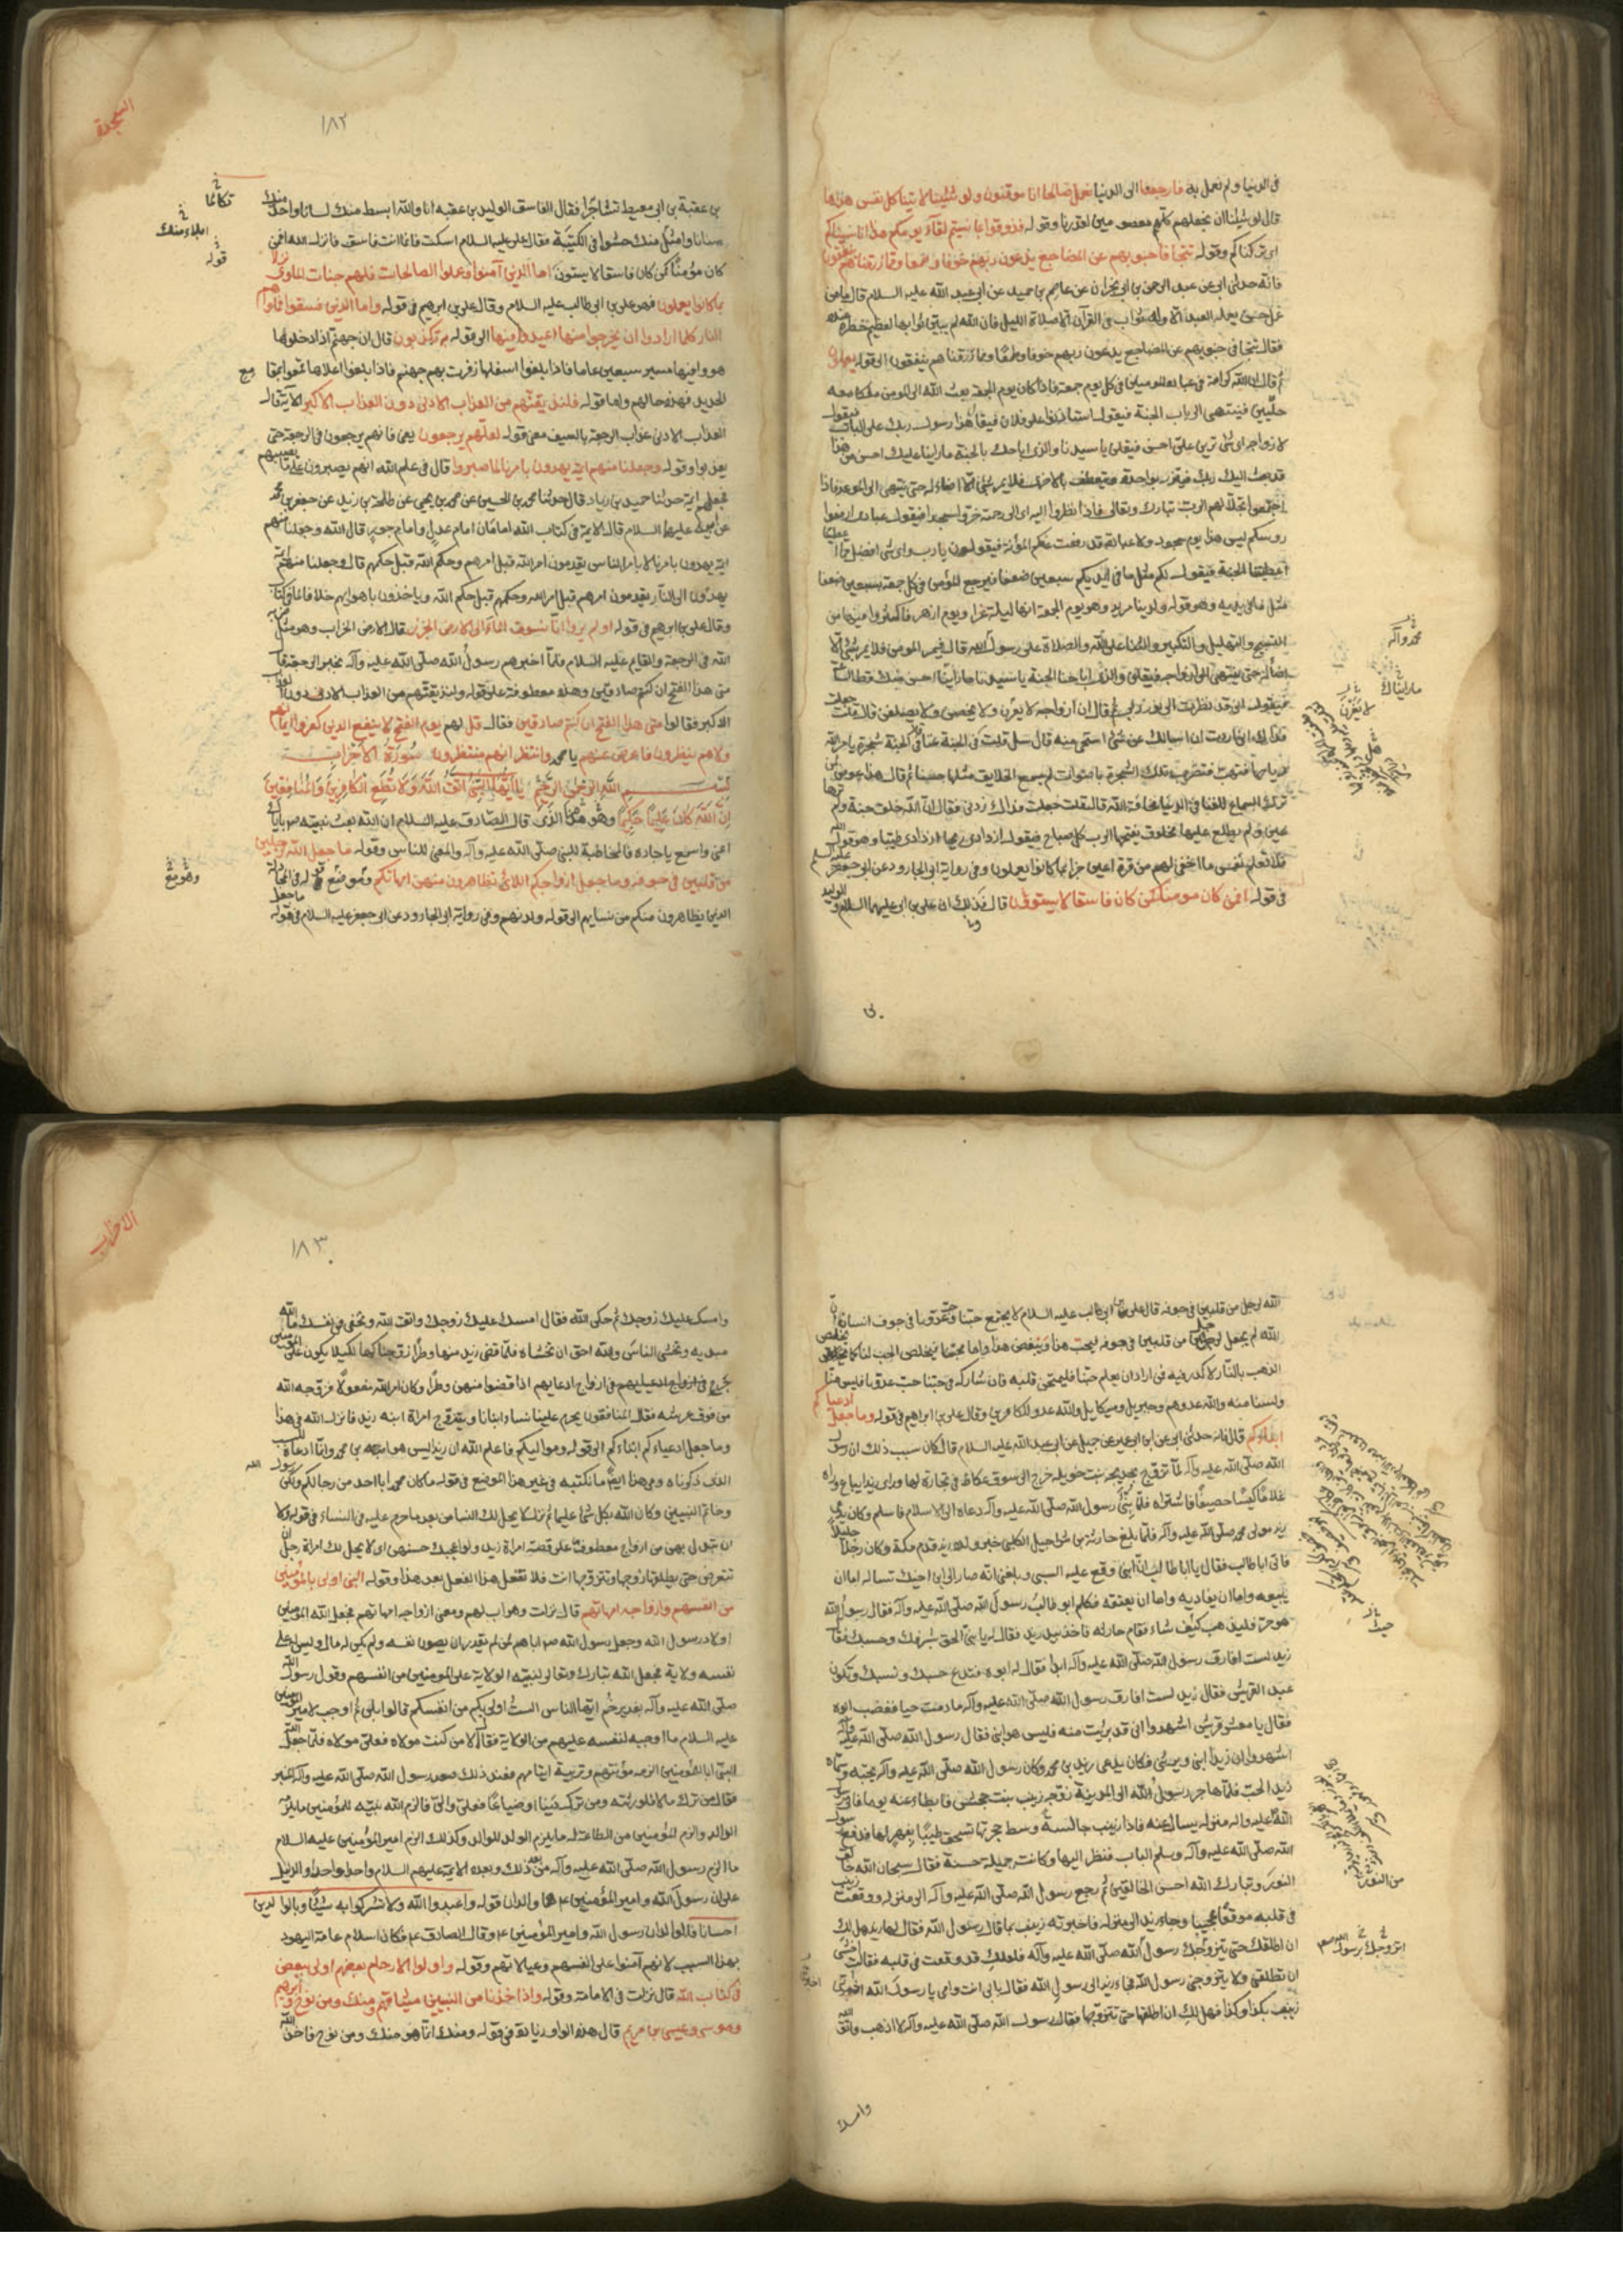 في الدنيا ولم نعمل به فارجعنا الى الدنيا نعمل صالحا انا موقنون ولو شئنا لاتينا كل نفس هداها
قال لو شئنا ان نجعلهم كلهم معصومين لقدرنا وقوله فذوقوا بما نسيتم لقاء يومكم هذا انا نسيناكم
اى تركناكم وقوله تتجافا جنوبهم عن المضاجع يدعون ربهم خوفا وطمعا ومما رزقناهم ينفقون
فانه حدثنى ابى عن عبد الرحمن بن ابى نجران عن عاصم بن حميد عن ابى عبد الله عليه السلام قال ما من
عمل حسن يعمله العبد الا وله ثواب في القرآن الا صلاة الليل فان الله لم يبين ثوابها لعظيم خطره عنده
فقال تتجافى جنوبهم عن المضاجع يدعون ربهم خوفا وطمعا ومما رزقناهم ينفقون الى قوله يعملون
ثم قال ان لله كرامة في عباده المومنين في كل يوم جمعة فاذا كان يوم الجمعة بعث الله الى المومن ملكا معه
حلتين فينتهى الى باب الجنة فيقول استاذنوا لى على فلان فيقال هذا رسول ربك على الباب فيقول
لازواجه اى شئ ترين على احسن فيقلن يا سيدنا والذى اباحك الجنة ما راينا عليك احسن من هذا
قد بعث اليك ربك فيتزر بواحدة ويتعطف بالاخرى فلا يمر بشئ الا اضاء له حتى ينتهى الى الموعد فاذا
اجتمعوا تجلى لهم الرب تبارك وتعالى فاذا نظروا اليه اى الى رحمته خروا سجدا فيقول عبادى ارفعوا
روسكم ليس هذا يوم سجود ولا عبادة قد رفعت عنكم المؤنة فيقولون يا رب واى شئ افضل مما
اعطيتنا الجنة فيقول لكم مثل ما في ايديكم سبعين ضعفا فيرجع المؤمن في كل جمعة بسبعين ضعفا
مثل ما في يديه وهو قوله ولدينا مزيد وهو يوم الجمعة انها ليلة غراء ويوم ازهر فاكثروا فيها من
التسبيح والتهليل والتكبير والثناء على الله والصلاة على رسول الله قال فيمر المومن فلا يمر بشئ الا
اضاء له حتى ينتهى الى ازواجه فيقلن والذى اباحنا الجنة يا سيدنا ما راينا احسن منك قط الساعة
محمد وآله
ما رايناك
فيقول انى قد نظرت الى نور ربى ثم قال ان ازواجه لا يغرن ولا يحضن ولا يصلفن قال قلت جعلت
فداك انى اردت ان اسالك عن شئ استحى منه قال سل قلت في الجنة غناء قال ان في الجنة شجرة يامر الله
رياحها فتهب فتضرب تلك الشجرة باصوات لم يسمع الخلايق مثلها حسنا ثم قال هذا عوض لمن
ترك السماع للغنا في الدنيا مخافة الله قال قلت جعلت فداك زدنى فقال ان الله خلق جنة ولم ترها
عين ولم يطلع عليها مخلوق يفتحها الرب كل صباح فيقول ازدادى ريحا ازدادى طيبا وهو قول الله
فلا تعلم نفس ما اخفى لهم من قرة اعين جزاء بما كانوا يعملون وفى رواية ابى الجارود عن ابى جعفر عليه السلم
في قوله افمن كان مومنا كمن كان فاسقا لا يستوون قال فذلك ان على بن ابى عليهما السلام والوليد
السجدة
١٨٢
بن عقبة بن ابى معيط تشاجرا فقال الفاسق الوليد بن عقبه انا والله ابسط منك لسانا واحد منك
سنانا وامثل منك حشوا في الكتيبة فقال على عليه السلام اسكت فانما انت فاسق فانزل الله افمن
كان مؤمنا كمن كان فاسقا لا يستون اما الذين آمنوا وعملوا الصالحات فلهم جنات الماوى نزلا
بما كانوا يعملون فهو على بن ابى طالب عليه السلام وقال على بن ابرهيم في قوله واما الذين فسقوا فماواهم
النار كلما ارادوا ان يخرجوا منها اعيدوا فيها الى قوله به تكذبون قال ان جهنم اذا دخلوها
هووا فيها مسير سبعين عاما فاذا بلغوا اسفلها زفرت بهم جهنم فاذا بلغوا اعلاها قمعوا بمقامع
الحديد فهذه حالهم واما قوله ولنذيقنهم من العذاب الادنى دون العذاب الاكبر الآية قال
العذاب الادنى عذاب الرجعة بالسيف معنى قوله لعلهم يرجعون يعنى فانهم يرجعون في الرجعة حتى
يعذبوا وقوله وجعلنا منهم ائمة يهدون بامرنا لما صبروا قال في علم الله انهم يصبرون على ما يصيبهم
فجعلهم ايمة حدثنا حميد بن زياد قال حدثنا محمد بن الحسين عن محمد بن يحيى عن طلحة بن زيد عن جعفر بن محمد
عن ابيه عليهما السلام قال الايمة في كتاب الله امامان امام عدل وامام جور قال الله وجعلنا منهم
ايمة يهدون بامرنا لا بامر الناس يقدمون امر الله قبل امرهم وحكم الله قبل حكمهم قال وجعلنا منهم ائمة
يهدون الى النار يقدمون امرهم قبل امر الله وحكمهم قبل حكم الله وياخذون باهوائهم خلافا لما في كتاب
وقال على بن ابراهيم في قوله اولم يروا انا نسوق الماء الى الارض الجرز قال الارض الخراب وهو مثل
الله في الرجعة والقايم عليه السلام فلما اخبرهم رسول الله صلى الله عليه وآله بخبر الرجعة قالوا
متى هذا الفتح ان كنتم صادقين وهذه معطوفة على قوله ولنذيقنهم من العذاب الادنى دون العذاب
الاكبر فقالوا متى هذا الفتح ان كنتم صادقين فقال قل لهم يوم الفتح لا ينفع الذين كفروا ايمانهم
ولا هم ينظرون فاعرض عنهم يا محمد وانتظر انهم منتظرون سورة الاحزاب
بسم الله الرحمن الرحيم يا ايها النبى اتق الله ولا تطع الكافرين والمنافقين
ان الله كان عليما حكيما وهو هذا الذى قال الصادق عليه السلام ان الله بعث نبيه باياك
اعنى واسمع يا جاره فالمخاطبة للنبى صلى الله عليه وآله والمعنى للناس وقوله ما جعل الله لرجل
من قلبين في جوفه وما جعل ازواجكم اللائى تظاهرون منهن امهاتكم
الذين يظاهرون منكم من نسايهم الى قوله ولدنهم وفى رواية ابى الجارود عن ابى جعفر عليه السلام في قوله ما جعل
الله لرجل من قلبين في جوفه قال على بن ابى طالب عليه السلام لا يجتمع حبنا وحب عدونا في جوف انسان ان
الله لم يجعل لرجل من قلبين في جوفه فيحب هذا ويبغض هذا واما محبنا فيخلص الحب لنا كما يخلص
الذهب بالنار لا كدر فيه فمن اراد ان يعلم حبنا فليمتحن قلبه فان شاركه في حبنا حب عدونا فليس منا
ولسنا منه والله عدوهم وجبريل وميكايل والله عدو للكافرين وقال على بن ابراهيم في قوله وما جعل ادعياءكم
ابناءكم قال فانه حدثنى ابى عن ابن ابى عمير عن جميل عن ابى عبد الله عليه السلام قال كان سبب ذلك ان رسول
الله صلى الله عليه وآله لما تزوج بخديجة بنت خويلد خرج الى سوق عكاظ في تجارة لها وراى زيدا يباع وراه
غلاما كيسا حصيفا فاشتراه فلما نبئ رسول الله صلى الله عليه وآله دعاه الى الاسلام فاسلم وكان يدعى
زيد مولى محمد صلى الله عليه وآله فلما بلغ حارثة بن شراحيل الكلبى خبر ولده زيد قدم مكة وكان رجلا جليلا
فاتى ابا طالب فقال يا ابا طالب ان ابنى وقع عليه السبى وبلغنى انه صار الى ابن اخيك تساله اما ان
يبيعه واما ان يفاديه واما ان يعتقه فكلم ابو طالب رسول الله صلى الله عليه وآله فقال رسول الله
هو حر فليذهب كيف شاء فقام حارثة فاخذ بيد زيد فقال له يا بنى الحق بشرفك وحسبك فقال
زيد لست افارق رسول الله صلى الله عليه وآله ابدا فقال له ابوه فتدع حسبك ونسبك وتكون
عبدا لقريش فقال زيد لست افارق رسول الله صلى الله عليه وآله ما دمت حيا فغضب ابوه
فقال يا معشر قريش اشهدوا انى قد بريت منه فليس هو ابنى فقال رسول الله صلى الله عليه وآله
اشهدوا ان زيدا ابنى وكان يدعى زيد بن محمد وكان رسول الله صلى الله عليه وآله يحبه وسماه
زيد الحب فلما هاجر رسول الله الى المدينة زوجه زينب بنت جحش فابطاء عنه يوما فاتى رسول
الله عليه واله منزله يسال عنه فاذا زينب جالسة وسط حجرتها تسحق طيبا بفهر لها فدفع رسول
الله صلى الله عليه وآله وسلم الباب فنظر اليها وكانت جميلة حسنة فقال سبحان الله خالق
النور وتبارك الله احسن الخالقين ثم رجع رسول الله صلى الله عليه وآله الى منزله ووقعت زينب
من النور
في قلبه موقعا عجيبا وجاء زيد الى منزله فاخبرته زينب بما قال رسول الله فقال لها زيد هل لك
ان اطلقك حتى يتزوجك رسول الله صلى الله عليه وآله فلعلك قد وقعت في قلبه فقالت اخشى
ان تطلقنى ولا يتزوجنى رسول الله فجاء زيد الى رسول الله فقال بابى انت وامى يا رسول الله اخبرتنى
زينب بكذا وكذا فهل لك ان اطلقها حتى تتزوجها فقال رسول الله صلى الله عليه وآله لا اذهب واتق الله
وامسك
الاحزاب
١٨٣
وامسك عليك زوجك ثم حكى الله فقال امسك عليك زوجك واتق الله وتخفى في نفسك ما الله
مبديه وتخشى الناس والله احق ان تخشاه فلما قضى زيد منها وطرا زوجناكها لكيلا يكون على المؤمنين
حرج في ازواج ادعيايهم اذا قضوا منهن وطرا وكان امر الله مفعولا فزوجه الله
من فوق عرشه فقال المنافقون يحرم علينا نساء ابنائنا ويتزوج امراة ابنه زيد فانزل الله في هذا
وما جعل ادعياءكم ابناءكم الى قوله ومواليكم فاعلم الله ان زيدا ليس هو ابن محمد وانما ادعاه للسبب
الذى ذكرناه وفى هذا ايضا ما نكتبه في غير هذا الموضع في قوله ما كان محمد ابا احد من رجالكم ولكن رسول الله
وخاتم النبيين وكان الله بكل شئ عليما ثم نزل لا يحل لك النساء من بعد ما حرم عليه في النساء في قوله ولا
ان تبدل بهن من ازواج معطوفة على قصة امراة زيد ولو اعجبك حسنهن اى لا يحل لك امراة رجل ان
تتعرض حتى يطلقها زوجها وتتزوجها انت فلا تفعل هذا الفعل بعد هذا وقوله النبى اولى بالمؤمنين
من انفسهم وازواجه امهاتهم قال نزلت وهو اب لهم ومعنى ازواجه امهاتهم فجعل الله المؤمنين
اولاد رسول الله وجعل رسول الله اباهم لمن لم يقدر ان يصون نفسه ولم يكن له مال وليس له على
نفسه ولاية فجعل الله تبارك وتعالى لنبيه الولاية على المومنين من انفسهم وقول رسول الله
صلى الله عليه وآله بغدير خم ايها الناس الست اولى بكم من انفسكم قالوا بلى ثم اوجب لامير المؤمنين
عليه السلام ما اوجبه لنفسه عليهم من الولاية فقال الا من كنت مولاه فعلى مولاه فلما جعل الله
النبى ابا المؤمنين الزمه مؤنتهم وتربية ايتامهم فعند ذلك صعد رسول الله صلى الله عليه وآله المنبر
فقال من ترك مالا فلورثته ومن ترك دينا او ضياعا فعلى والى فالزم الله نبيه للمؤمنين ما يلزم
الوالد والزم المؤمنين من الطاعة له ما يلزم الولد للوالد وكذلك الزم امير المؤمنين عليه السلام
ما الزم رسول الله صلى الله عليه وآله من بعد ذلك وبعده الائمة عليهم السلام واحدا واحدا والدليل
على ان رسول الله وامير المؤمنين هما والدان قوله واعبدوا الله ولا تشركوا به شيئا وبالوالدين
احسانا فالوالدان رسول الله وامير المؤمنين وقال الصادق فكان اسلام عامة اليهود
بهذا السبب لانهم آمنوا على انفسهم وعيالاتهم وقوله واولوا الارحام بعضهم اولى ببعض
في كتاب الله قال نزلت في الامامة وقوله واذ اخذنا من النبيين ميثاقهم ومنك ومن نوح وابرهيم
وموسى وعيسى بن مريم قال هذه الواو زيادة في قوله ومنك انما هو منك ومن نوح فاخذ الله